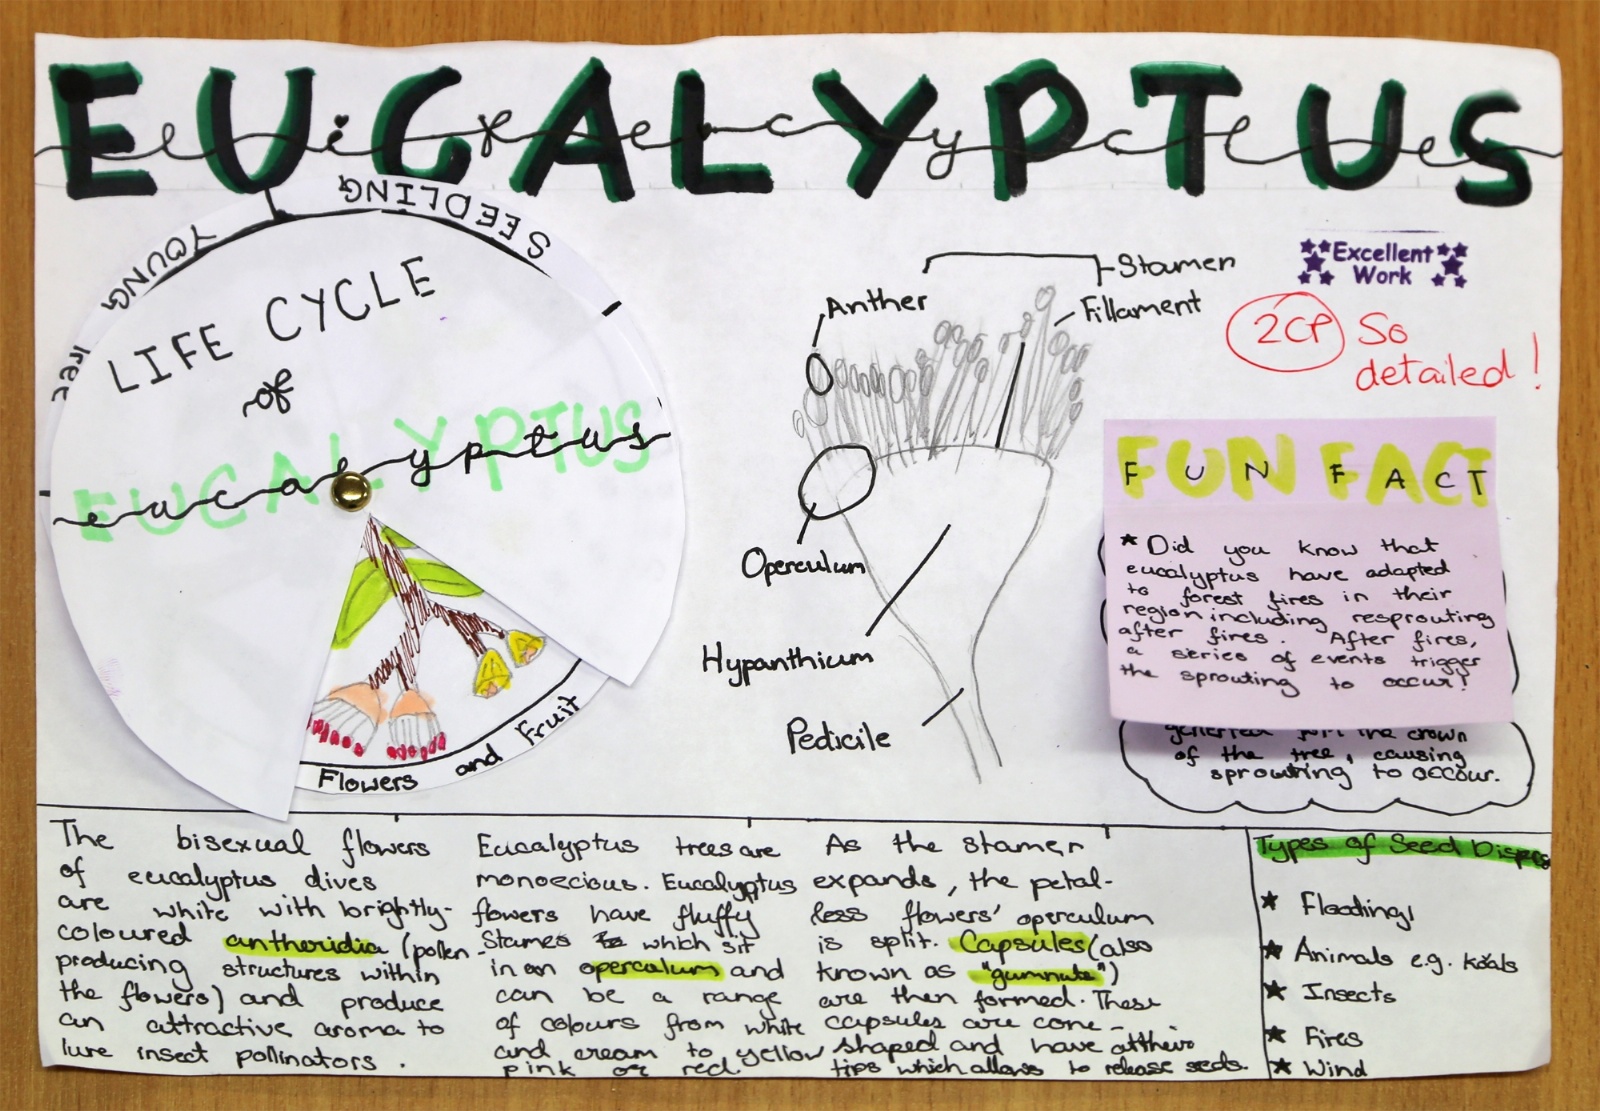 EUCALYPTUS
life cycle
SEEDLING
YOUNG
Tree
LIFE CYCLE
of
EUCALYPTUS
eucalyptus
Flowers and Fruit
Stamen
Anther
Fillament
Operculum
Hypanthium
Pedicile
Excellent
Work
2CP So
detailed!
FUN FACT
FUN FACT
* Did you know that
eucalyptus have adapted
to forest fires in their
region including resprouting
after fires. After fires,
a series of events trigger
the sprouting to occur!
the crown
of the tree, causing
sprouting to occour.
The bisexual flowers
of eucalyptus dives
are white with brightly-
coloured antheridia (pollen-
producing structures within
the flowers) and produce
an attractive aroma to
lure insect pollinators.
Eucalyptus trees are
monoecious. Eucalyptus
flowers have fluffy
Stames which sit
in an operculum and
can be a range
of colours from white
and cream to yellow
pink or red.
As the stamen
expands, the petal-
less flowers' operculum
is split. Capsules (also
known as "gumnuts")
are then formed. These
capsules are cone-
shaped and have at their
tips which allows to release seeds.
Types of Seed
* Flooding
* Animals e.g. koals
* Insects
* Fires
* Wind